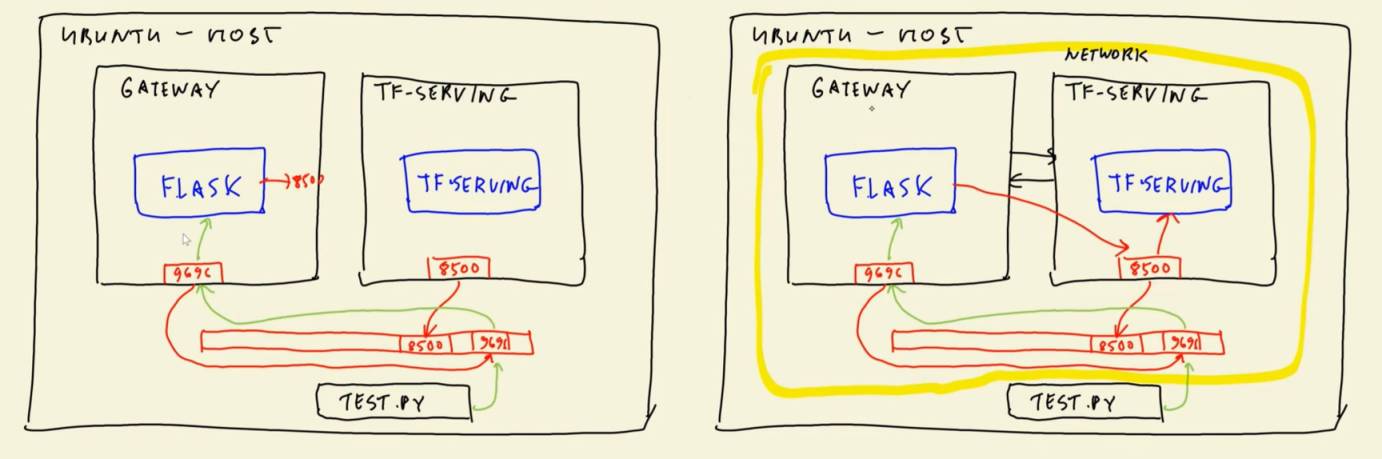 UBUNTU - HOST
GATEWAY
TF-SERVING
FLASK
8500
TF-SERVING
9696
8500
8500
9696
TEST.PY
UBUNTU - HOST
NETWORK
GATEWAY
TF-SERVING
FLASK
TF-SERVING
9696
8500
8500
9696
TEST.PY